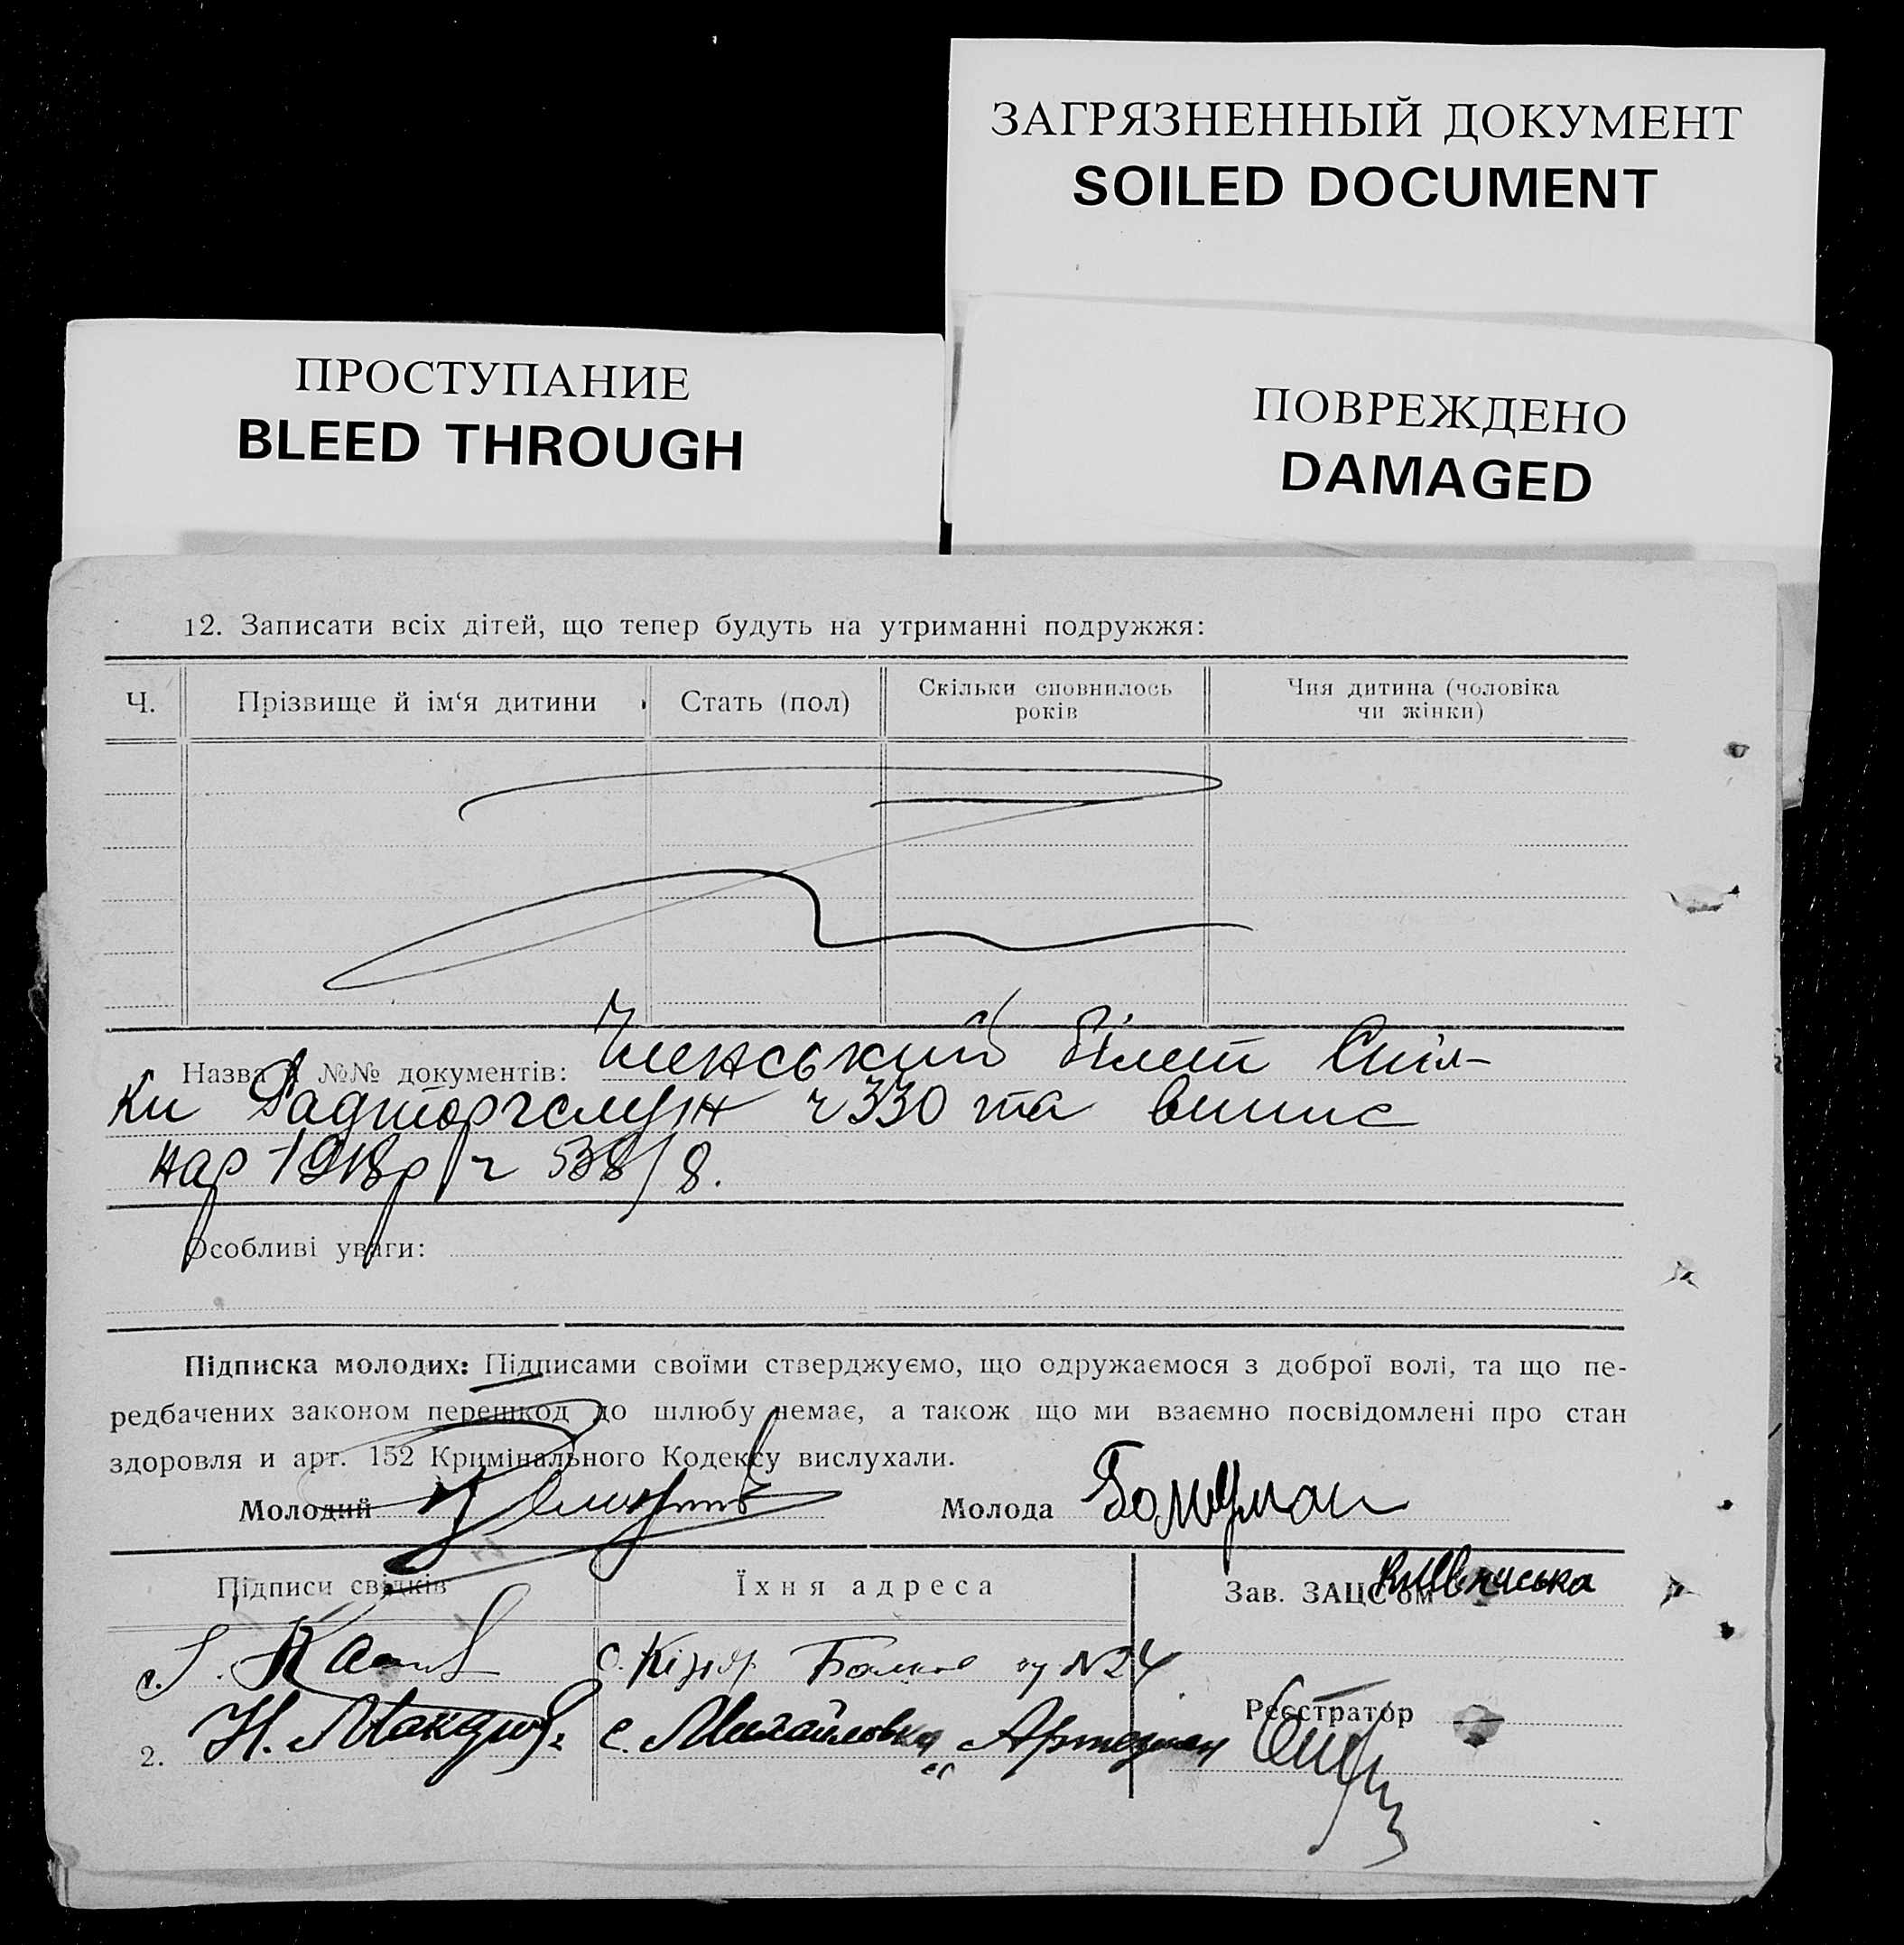 ЗАГРЯЗНЕННЫЙ ДОКУМЕНТ
SOILED DOCUMENT
ПРОСТУПАНИЕ
BLEED THROUGH
ПОВРЕЖДЕНО
DAMAGED
12. Записати всіх дітей, що тепер будуть на утриманні подружжя:
Ч.
Прізвище й ім‘я дитини
Стать (пол)
Скільки сповнилось
років
Чия дитина (чоловіка
чи жінки)
Назва і №№ документів: Членський білет Спіл-
ки Радторгслуж ч 330 та випис
нар 1913р ч 538/8.
Особливі уваги:
Підписка молодих: Підписами своїми стверджуємо, що одружаємося з доброї волі, та що пе-
редбачених законом перешкод до шлюбу немає, а також що ми взаємно посвідомлені про стан
здоровля и арт. 152 Кримінального Кодексу вислухали.
Молодий
Молода
Підписи свідків
Їхня адреса
Зав. ЗАЦС‘ом
1.
№24
2. Н.
с. Михайловка
Реєстратор